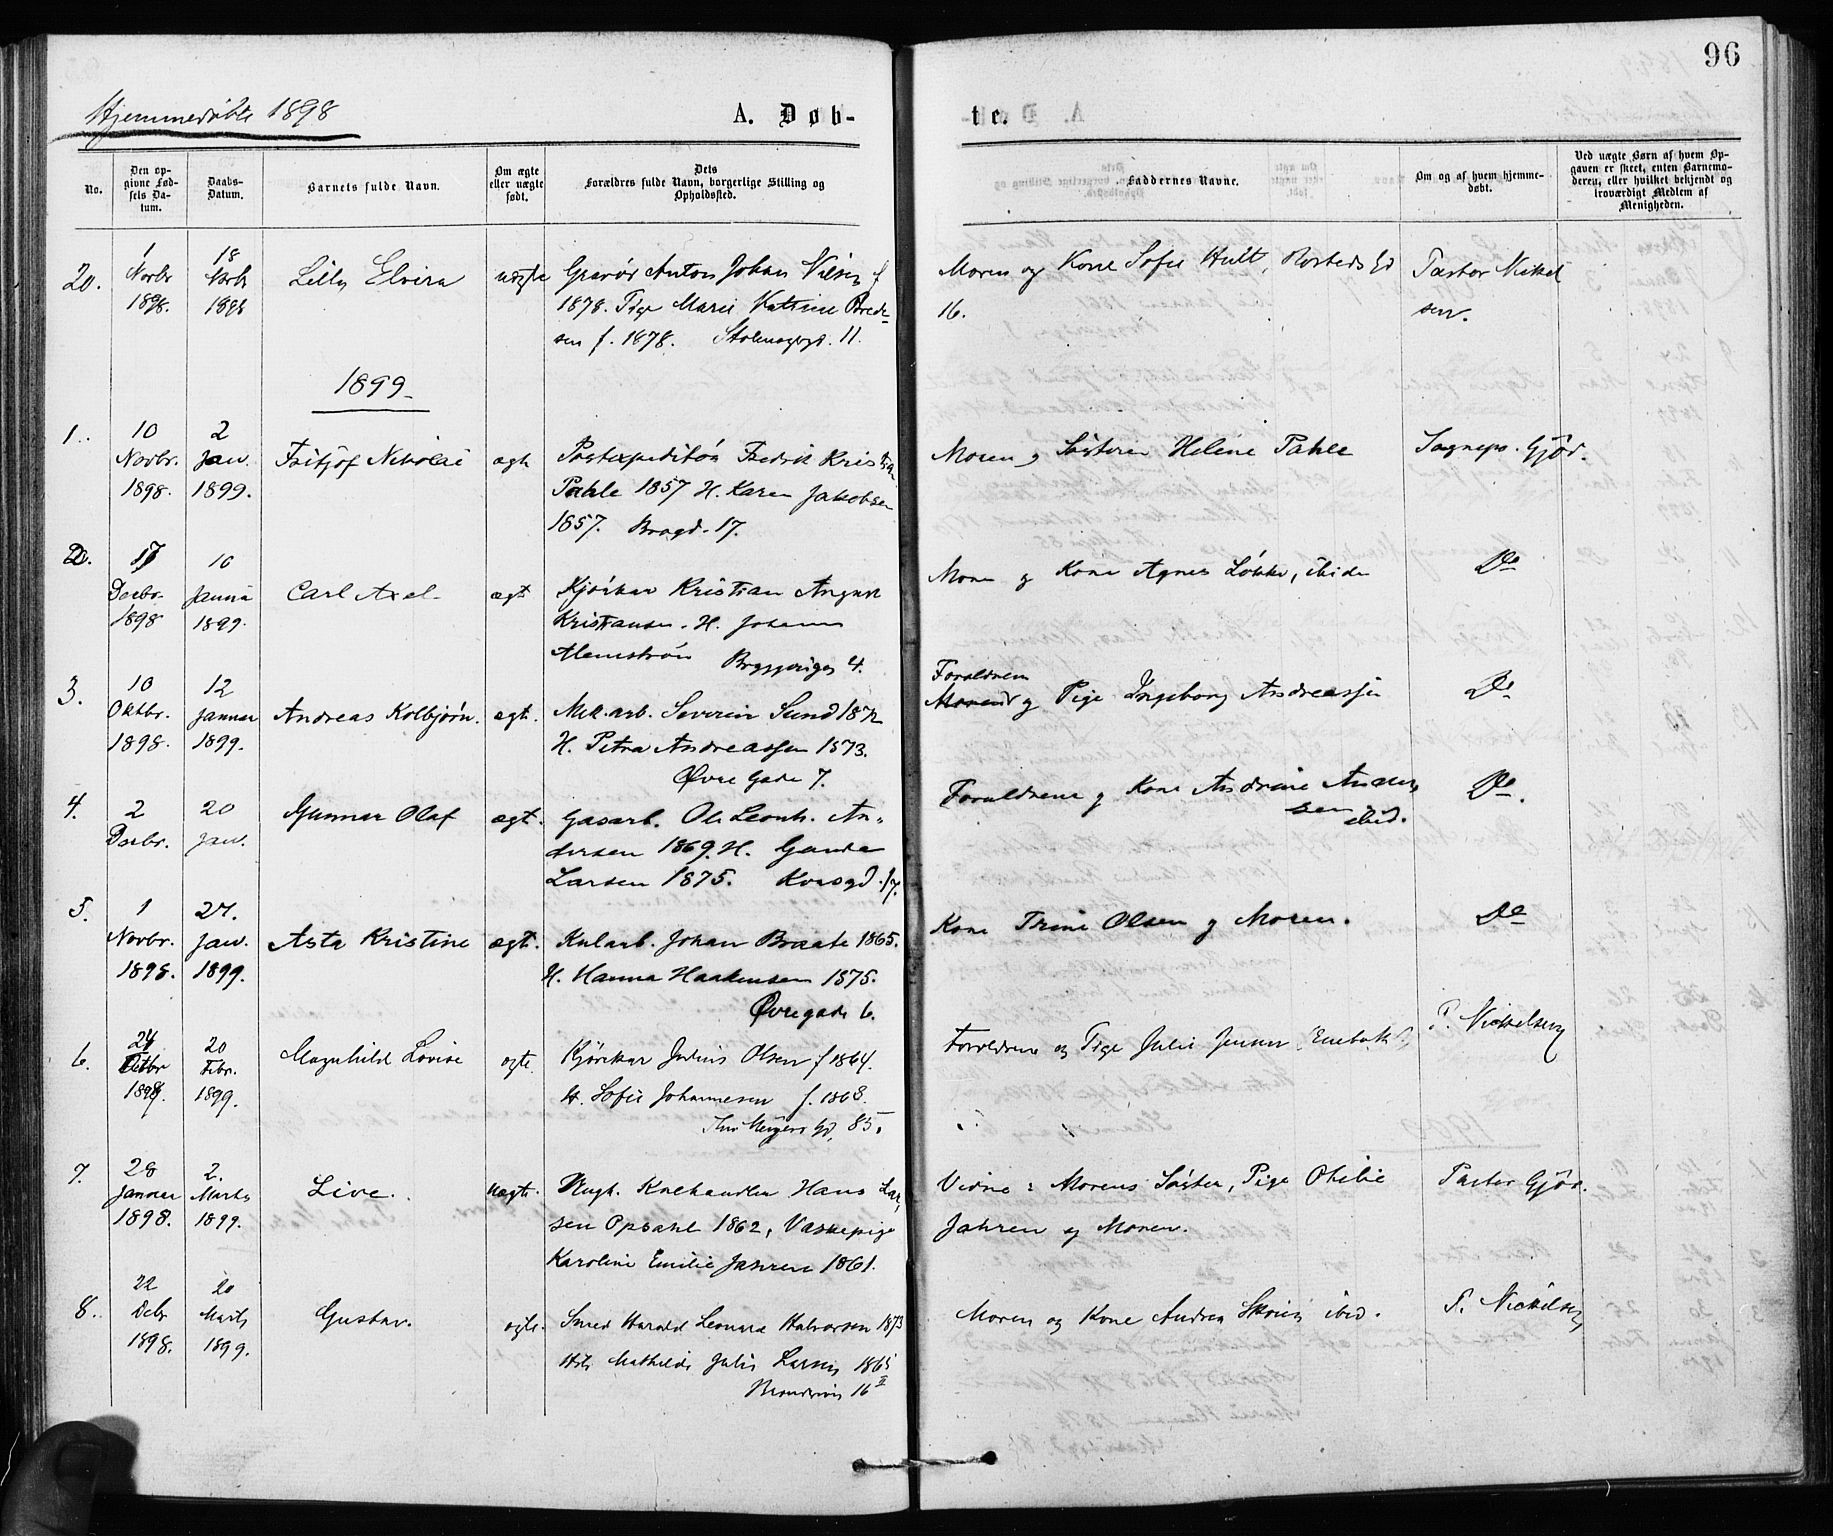 96
Hjemmedøbte 1898
A. Døb-
te.
No.
Den op-
givne Fød-
sels Da-
tum.
Daabs-
Datum.
Barnets fulde Navn.
Om ægte
eller uægte
født.
Dets
Forældres fulde Navn, borgerlige Stilling og
Opholdssted.
Faddernes Navne.
Om og af hvem hjemme-
døbt.
Ved uægte Børn af hvem Op-
gaven er skeet, enten Barnemo-
deren, eller hvilket bekjendt og
troværdigt Medlem af
Menigheden.
20.
1
Novbr
1898.
18
1898
Lilly Elvira
uægte
Gravør Anton Johan Nilsen f
1878. Pige Marie Katrine Brede-
sen f. 1878. 11.
Moren og Kone Sofie Hult, Rosteds gd
16.
Pastor Nickel
sen.
1899
1.
10
Novbr.
1898.
2
Jan.
1899.
Fritjof Nikolai
ægte
Postexpeditør Fredrik Kristian
Pahle 1857 H. Karen Jakobsen
1857. Brogd. 17.
Moren og Søsteren Helene Pahle
Sognepr. Gjør.
2.
17
Decbr.
1898
10
Janua
1899.
Carl Axel
ægt
Kjørekar Kristian August
Kristiansen. H. Johanne
Almstrøm Bryggerigd 4.
Moren og Kone Agnes Løkke, ibiden
Do
3.
10
Oktbr.
1898.
12
Januar
1899.
Andreas Kolbjørn.
ægt.
Mek. arb. Severin Sund 1872
H. Petra Andreassen 1873.
Øvre Gade 7.
Forældrene
Moren og Pige Ingeborg Andreassen
Do
4.
2
Decbr.
20
Jan.
Gunnar Olaf
ægt.
Gasarb. Ole Leonh. An-
dersen 1869. H. Ganda
Larsen 1875. Korsgd. 17.
Forældrene og Kone Andrine Ander
sen ibid.
Do.
5.
1
Novbr.
1898.
27.
Jan.
1899.
Asta Kristine
ægt.
Kularb. Johan Braate 1865.
H. Hanna Haakensen 1875.
Øvregade 6.
Kone Trine Olsen og Moren.
Do
6.
24
Oktbr
1898.
20
Febr.
1899.
Magnhild Lovise
ægte.
Kjørekar Julius Olsen f 1864.
H. Sofie Johannesen f. 1868.
Ths Meyers Gd. 85.
Forældrene og Pige Julie Jensen (Enebak)
P. Nickelsen
7.
28
Januar
1898.
2.
Marts
1899.
Live.
uægte.
Ungk. Kulhandler Hans Lar
sen Opsahl 1862, Vaskepige
Karoline Emilie Jahren 1861.
Vidne: Morens Søster, Pige Othilie
Jahren og Moren.
Pastor Gjør.
8.
22
Debr
1898.
20
Marts
1899.
Gustav.
ægte.
Smed Harald Leonard Halvorsen 1873
Hst. Mathilde Julie Larsen 1865
16 II
Moren og Kone Andrea Skoien ibid.
P. Nickelsen